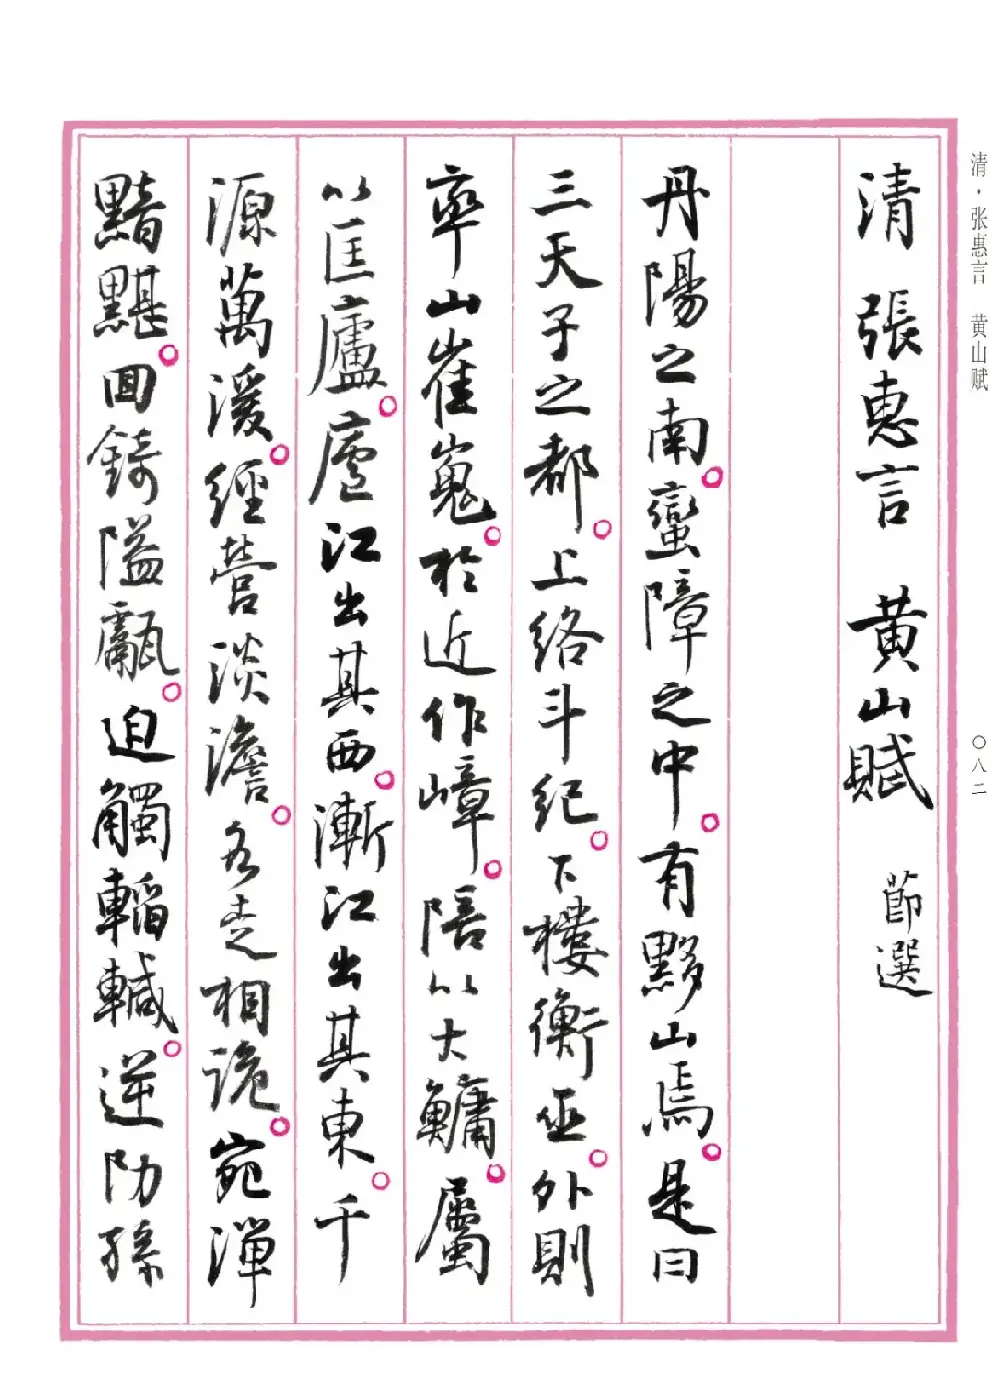 清·张惠言 黄山赋
〇八二
清 張惠言 黄山賦 節選
丹陽之南。蠻障之中。有黟山焉。是曰
三天子之都。上絡斗紀。下樓衡巫。外則
率山崔嵬。於近作嶂。陪以大鱅。屬
以匡廬。廬江出其西。漸江出其東。千
源萬湲。經營淡澹。各走相詭。宛潬
黯黮。回錡隘甗。迫觸轁轗。逆阞孫